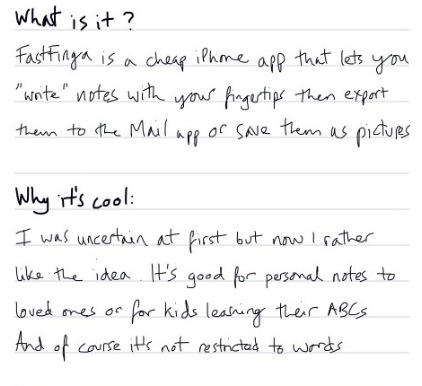 What is it?
FastFinga is a cheap iPhone app that lets you
"write" notes with your fingertips then export
them to the Mail app or save them as pictures
Why it's cool:
I was uncertain at first but now I rather
like the idea. It's good for personal notes to
loved ones or for kids learning their ABCs
And of course it's not restricted to words